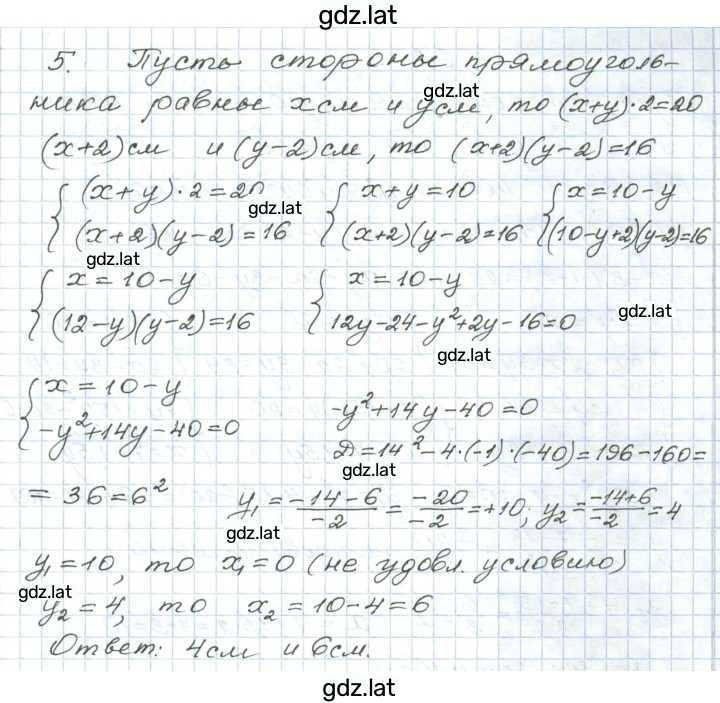 gdz.lat
5. Пусть стороны прямоуголь-
gdz.lat
ника равны x см и y см, то (x+y)·2=20
(x+2) см и (y-2) см, то (x+2)(y-2)=16
{ (x+y)·2=20 { x+y=10 { x=10-y
gdz.lat
(x+2)(y-2)=16 (x+2)(y-2)=16 (10-y+2)(y-2)=16
gdz.lat
{ x=10-y { x=10-y
gdz.lat
(12-y)(y-2)=16 12y-24-y²+2y-16=0
gdz.lat
{ x=10-y
-y²+14y-40=0 -y²+14y-40=0
D=14²-4·(-1)·(-40)=196-160=
gdz.lat
=36=6² y₁=\frac{-14-6}{-2}=\frac{-20}{-2}=+10; y₂=\frac{-14+6}{-2}=4
gdz.lat
y₁=10, то x₁=0 (не удовл. условию)
gdz.lat
y₂=4, то x₂=10-4=6
Ответ: 4см и 6см.
gdz.lat